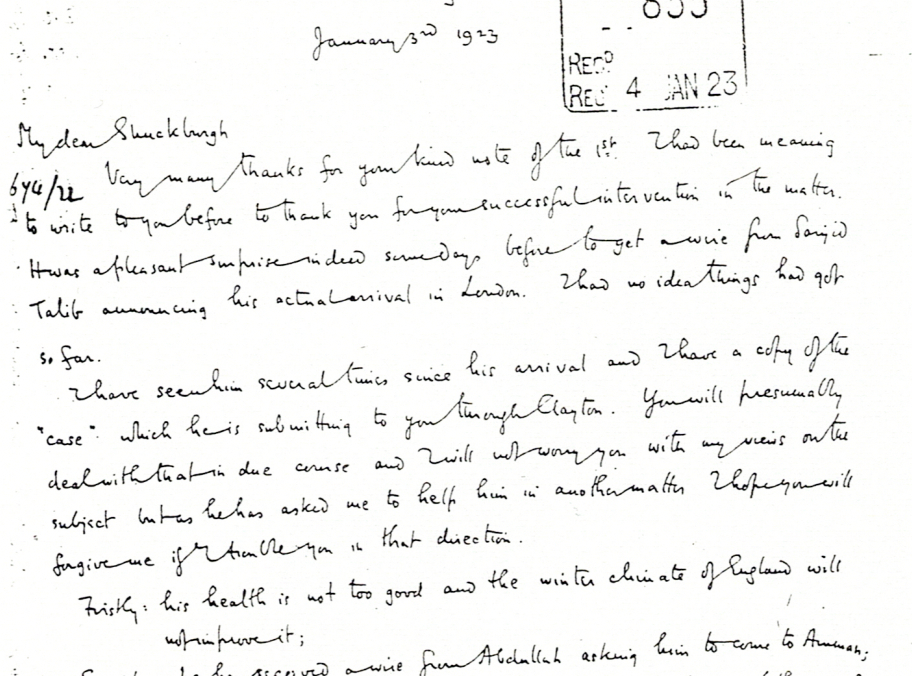 855
January 3rd 1923
RECD
REG 4 JAN 23
My dear Shuckburgh
Very many thanks for your kind note of the 1st. I had been meaning
674/22
to write to you before to thank you for your successful intervention in the matter.
It was a pleasant surprise indeed some days before to get a wire from Saiyid
Talib announcing his actual arrival in London. I had no idea things had got
so far.
I have seen him several times since his arrival and I have a copy of the
"case" which he is submitting to you through Clayton. You will presumably
deal with that in due course and I will not worry you with my views on the
subject but as he has asked me to help him in another matter I hope you will
forgive me if I trouble you in that direction.
Firstly: his health is not too good and the winter climate of England will
not improve it;
he received a wire from Abdullah asking him to come to Amman;